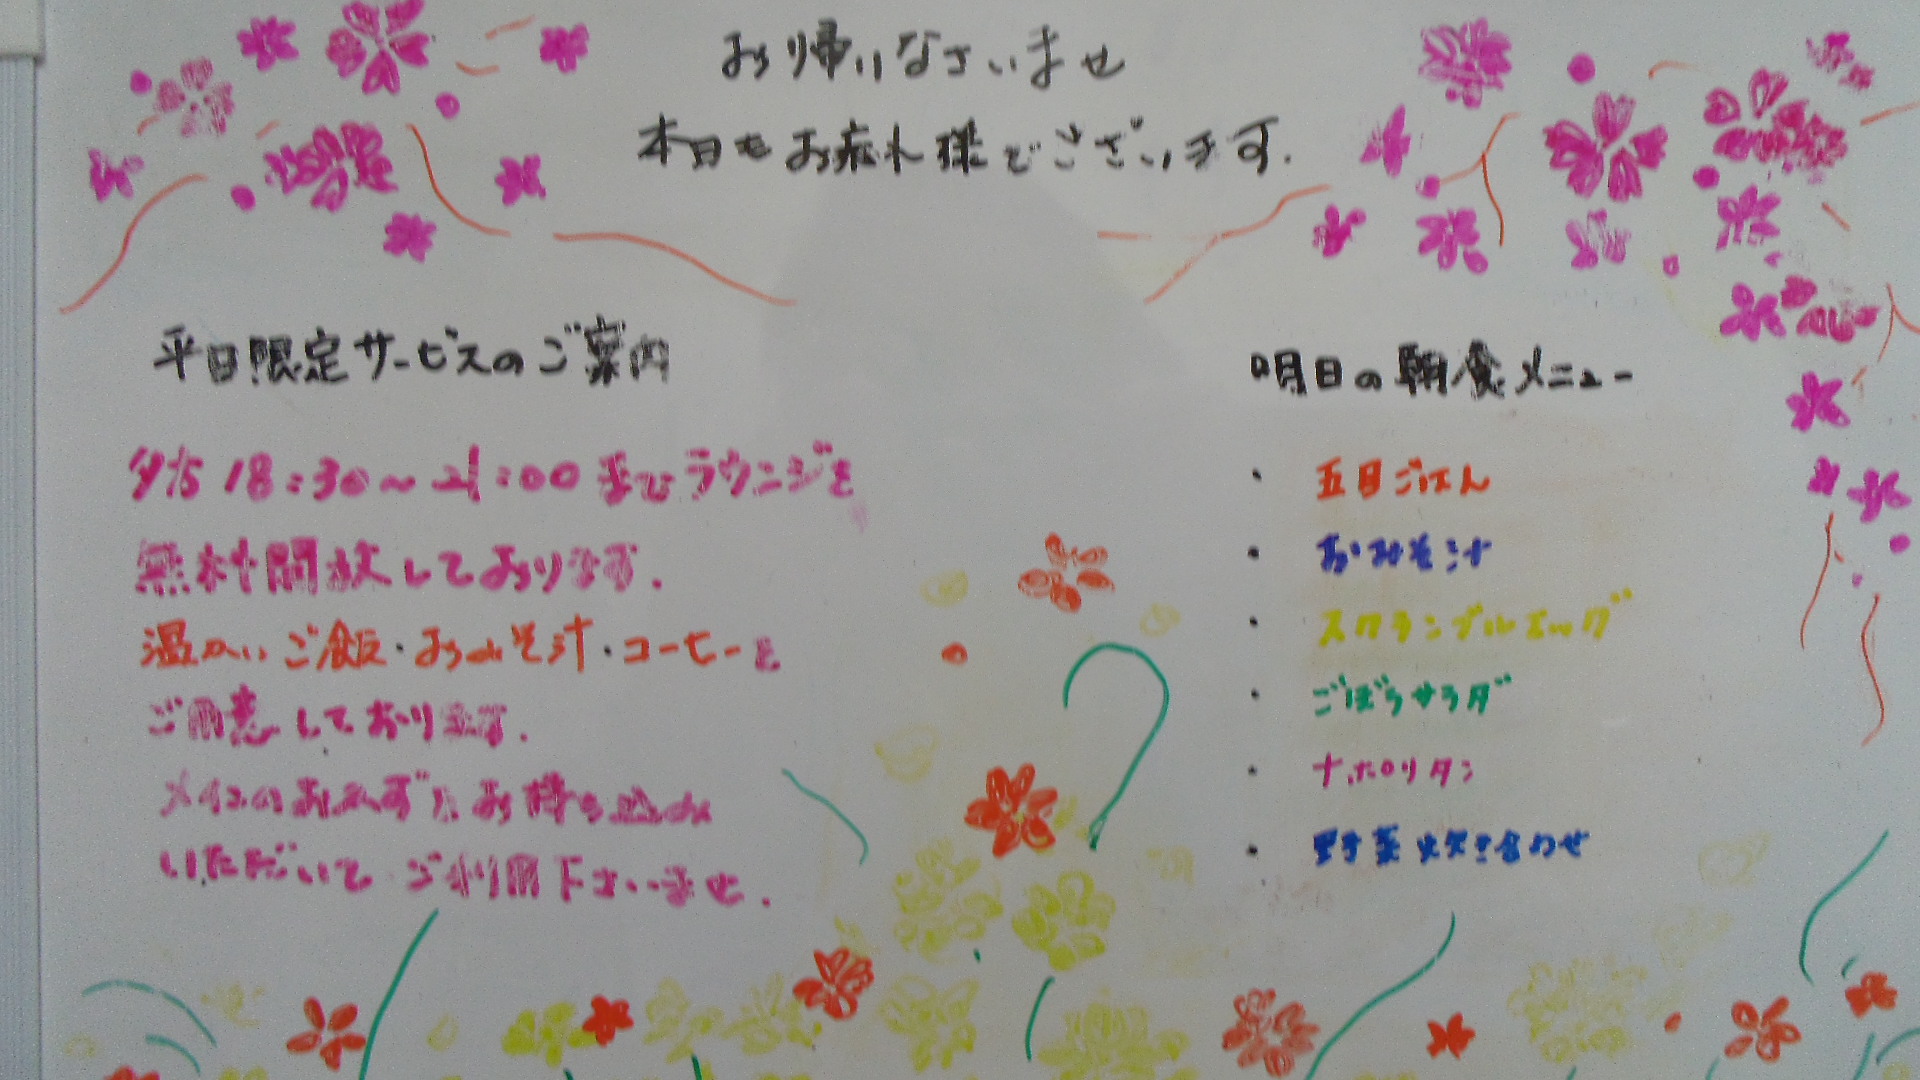 お帰りなさいませ
本日もお疲れ様でございます.
平日限定サービスのご案内
夕方 18:30～21:00までラウンジを
無料開放しております.
温かいご飯・おみそ汁・コーヒーを
ご用意しております.
メインのおかずをお持ち込み
いただいて ご利用下さいませ.
明日の朝食メニュー
・ 五目ごはん
・ おみそ汁
・ スクランブルエッグ
・ ごぼうサラダ
・ ナポリタン
・ 野菜炊き合わせ